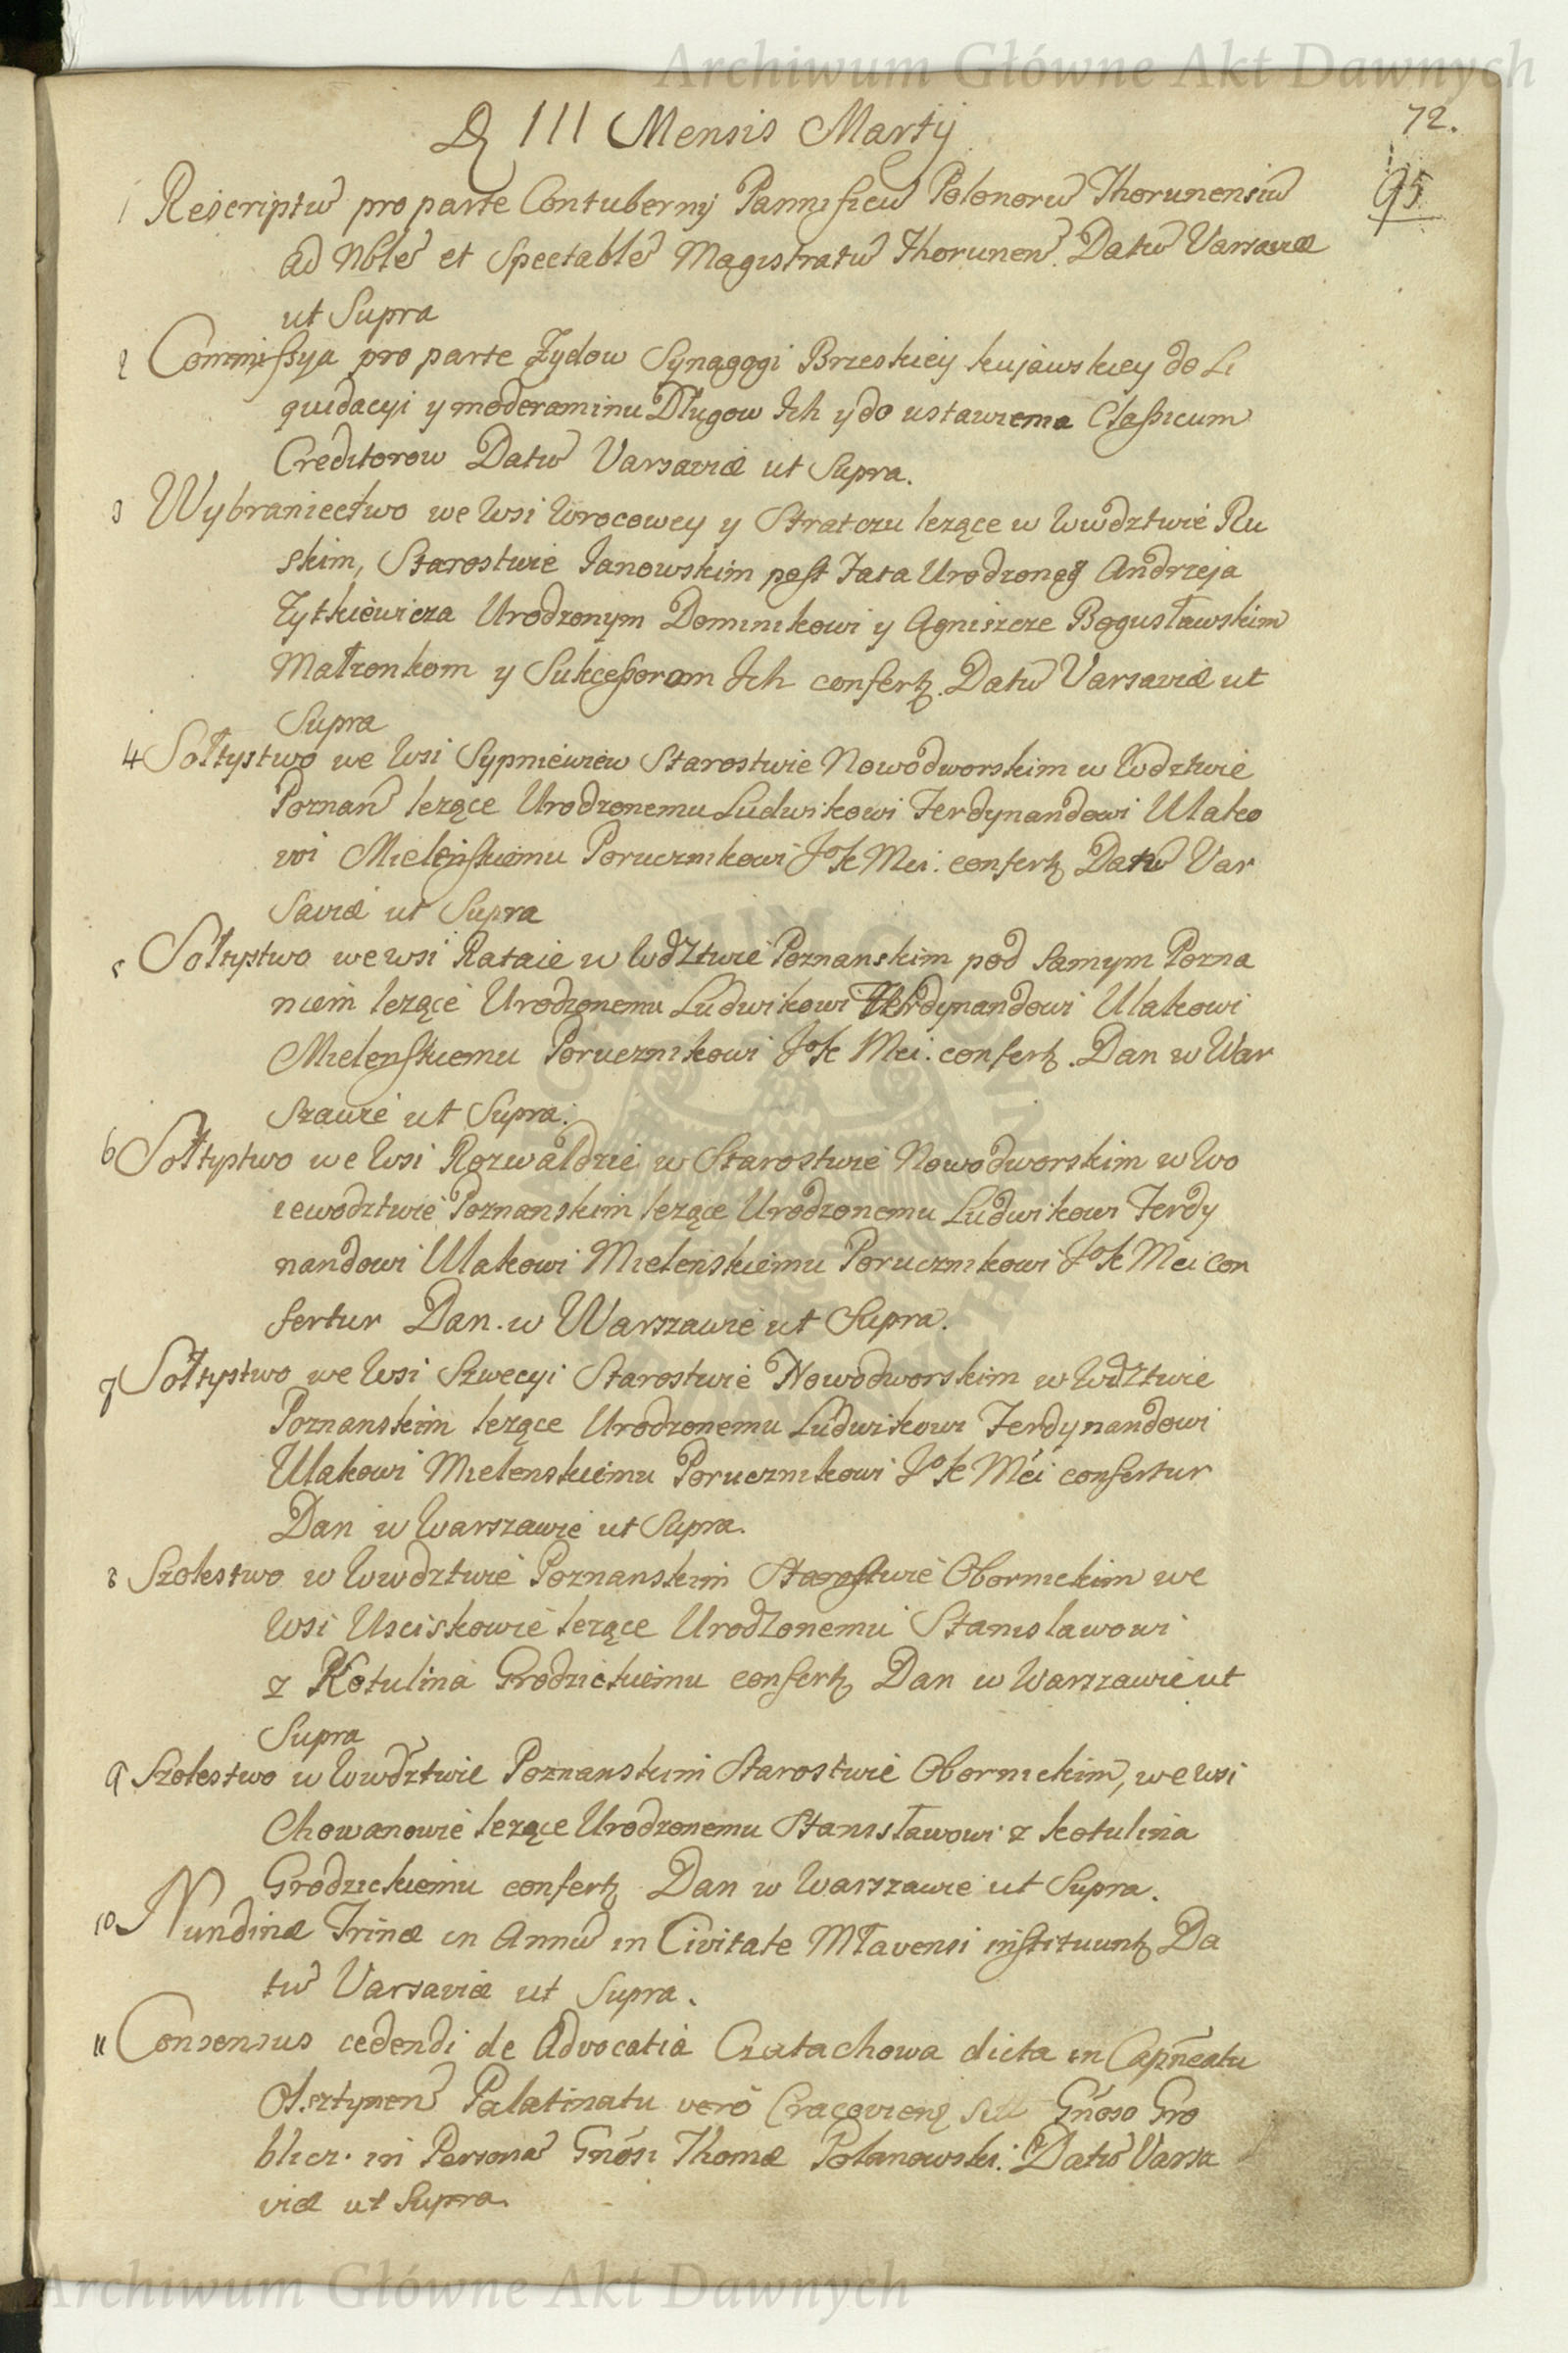 Archiwum Główne Akt Dawnych
D. III Mensis Martij
72.
95
1 Rescriptu̅ pro parte Contubernij Pannificu̅ Polonoru̅ Thorunensiu̅
ad Nble̅ et Spectable̅ Magistratu̅ Thorunen̅. Datu̅ Varsaviæ
ut Supra
2 Commissya pro parte Zydow Synagogi Brzeskiey kujawskiey do Li
quidacyi y moderaminu Długow Ich y do ustawiema Classicum
Creditorow Datu̅ Varsaviæ ut Supra.
3 Wybraniectwo we wsi Wrocowey y Stratczu lezące w Wwdztwie Ru
skim, Starostwie Janowskim post Fata Urodzoneg Andrzeja
Zytkiewicza Urodzonym Dominikowi y Agniszcze Bogusławskim
Małzonkom y Sukcessorom Ich confertꝛ. Datu̅ Varsaviæ ut
Supra
4 Sołtystwo we wsi Sypniewiew Starostwie Nowodworskim w Wdztwie
Poznan̅ lezące Urodzonemu Ludwikowi Ferdynandowi Ulako
wi Mielenskiemu Porucznikowi JoK Mci. confertꝛ Datu̅ Var
saviæ ut Supra
5 Sołtystwo we wsi Rataie w Wdztwie Poznanskim pod Samym Pozna
niem lezące Urodzonemu Ludwikowi Ferdynandowi Ulakowi
Mielenskiemu Porucznikowi JoK Mci. confertꝛ. Dan w War
szawie ut Supra.
6 Sołtystwo we wsi Rozwałdzie w Starostwie Nowodworskim w Wo
iewodztwie Poznanskim lezące Urodzonemu Ludwikowi Ferdy
nandowi Ulakowi Mielenskiemu Porucznikowi JoK Mci con
fertur Dan. w Warszawie ut Supra.
7 Sołtystwo we wsi Szwecyi Starostwie Nowodworskim w Wdztwie
Poznanskim lezące Urodzonemu Ludwikowi Ferdynandowi
Ulakowi Mielenskiemu Porucznikowi JoK Mci confertur
Dan w Warszawie ut Supra.
8 Szolestwo w Wwdztwie Poznanskim Starostwie Obornickim we
wsi Usciskowie lezące Urodzonemu Stanislawowi
z Kotulina Grodzickiemu confertꝛ Dan w Warszawie ut
Supra
9 Szolestwo w Wwdztwie Poznanskim Starostwie Obornickim, we wsi
Chowanowie lezące Urodzonemu Stanisławowi z Kotulina
Grodzickiemu confertꝛ Dan w Warszawie ut Supra.
10 Nundinæ Trinæ in Annu̅ in Civitate Młavensi instituuntꝛ Da
tu̅ Varsaviæ ut Supra.
11 Consensus cedendi de Advocatia Czatachowa dicta in Capne̅atu
Olsztynen̅ Palatinatu vero Cracovien̅ Gn̅oso Gro
blicz. in Persona̅ Gn̅osi Thomæ Polanowski. Datu̅ Varsa
viæ ut Supra.
Archiwum Główne Akt Dawnych